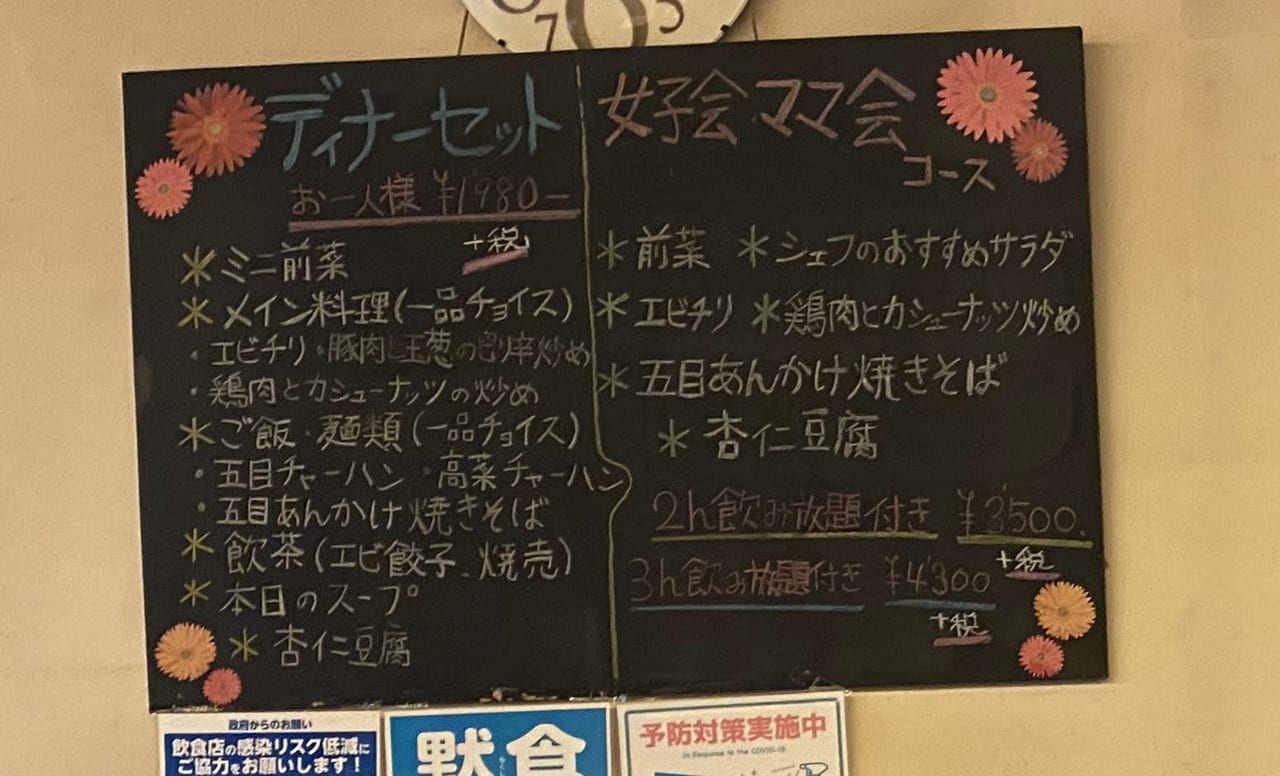 7 6 5
ディナーセット
お一人様 ¥1980ー
+税
＊ミニ前菜
＊メイン料理(一品チョイス)
・エビチリ・豚肉と玉葱のピリ辛炒め
・鶏肉とカシューナッツの炒め
＊ご飯・麺類(一品チョイス)
・五目チャーハン ・高菜チャーハン
・五目あんかけ焼きそば
＊飲茶(エビ餃子、焼売)
＊本日のスープ
＊杏仁豆腐
女子会・ママ会
コース
＊前菜 ＊シェフのおすすめサラダ
＊エビチリ ＊鶏肉とカシューナッツ炒め
＊五目あんかけ焼きそば
＊杏仁豆腐
2h飲み放題付き ¥3500.
+税
3h飲み放題付き ¥4300
+税
政府からのお願い
飲食店の感染リスク低減に
ご協力をお願いします！
黙食
予防対策実施中
In Response to the COVID-19